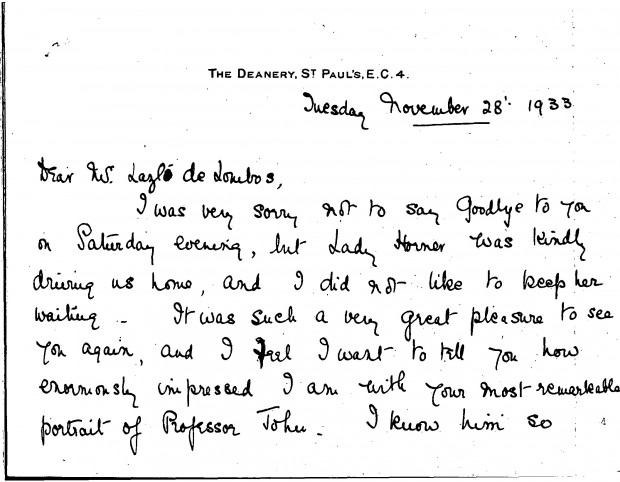 THE DEANERY, ST PAUL'S, E.C. 4.
Tuesday November 28. 1933
Dear Mr. Lazló de Lombos,
I was very sorry not to say Goodbye to you
on Saturday evening, but Lady Horner was kindly
driving us home, and I did not like to keep her
waiting - It was such a very great pleasure to see
you again, and I feel I want to tell you how
enormously impressed I am with your most remarkable
portrait of Professor John. I know him so